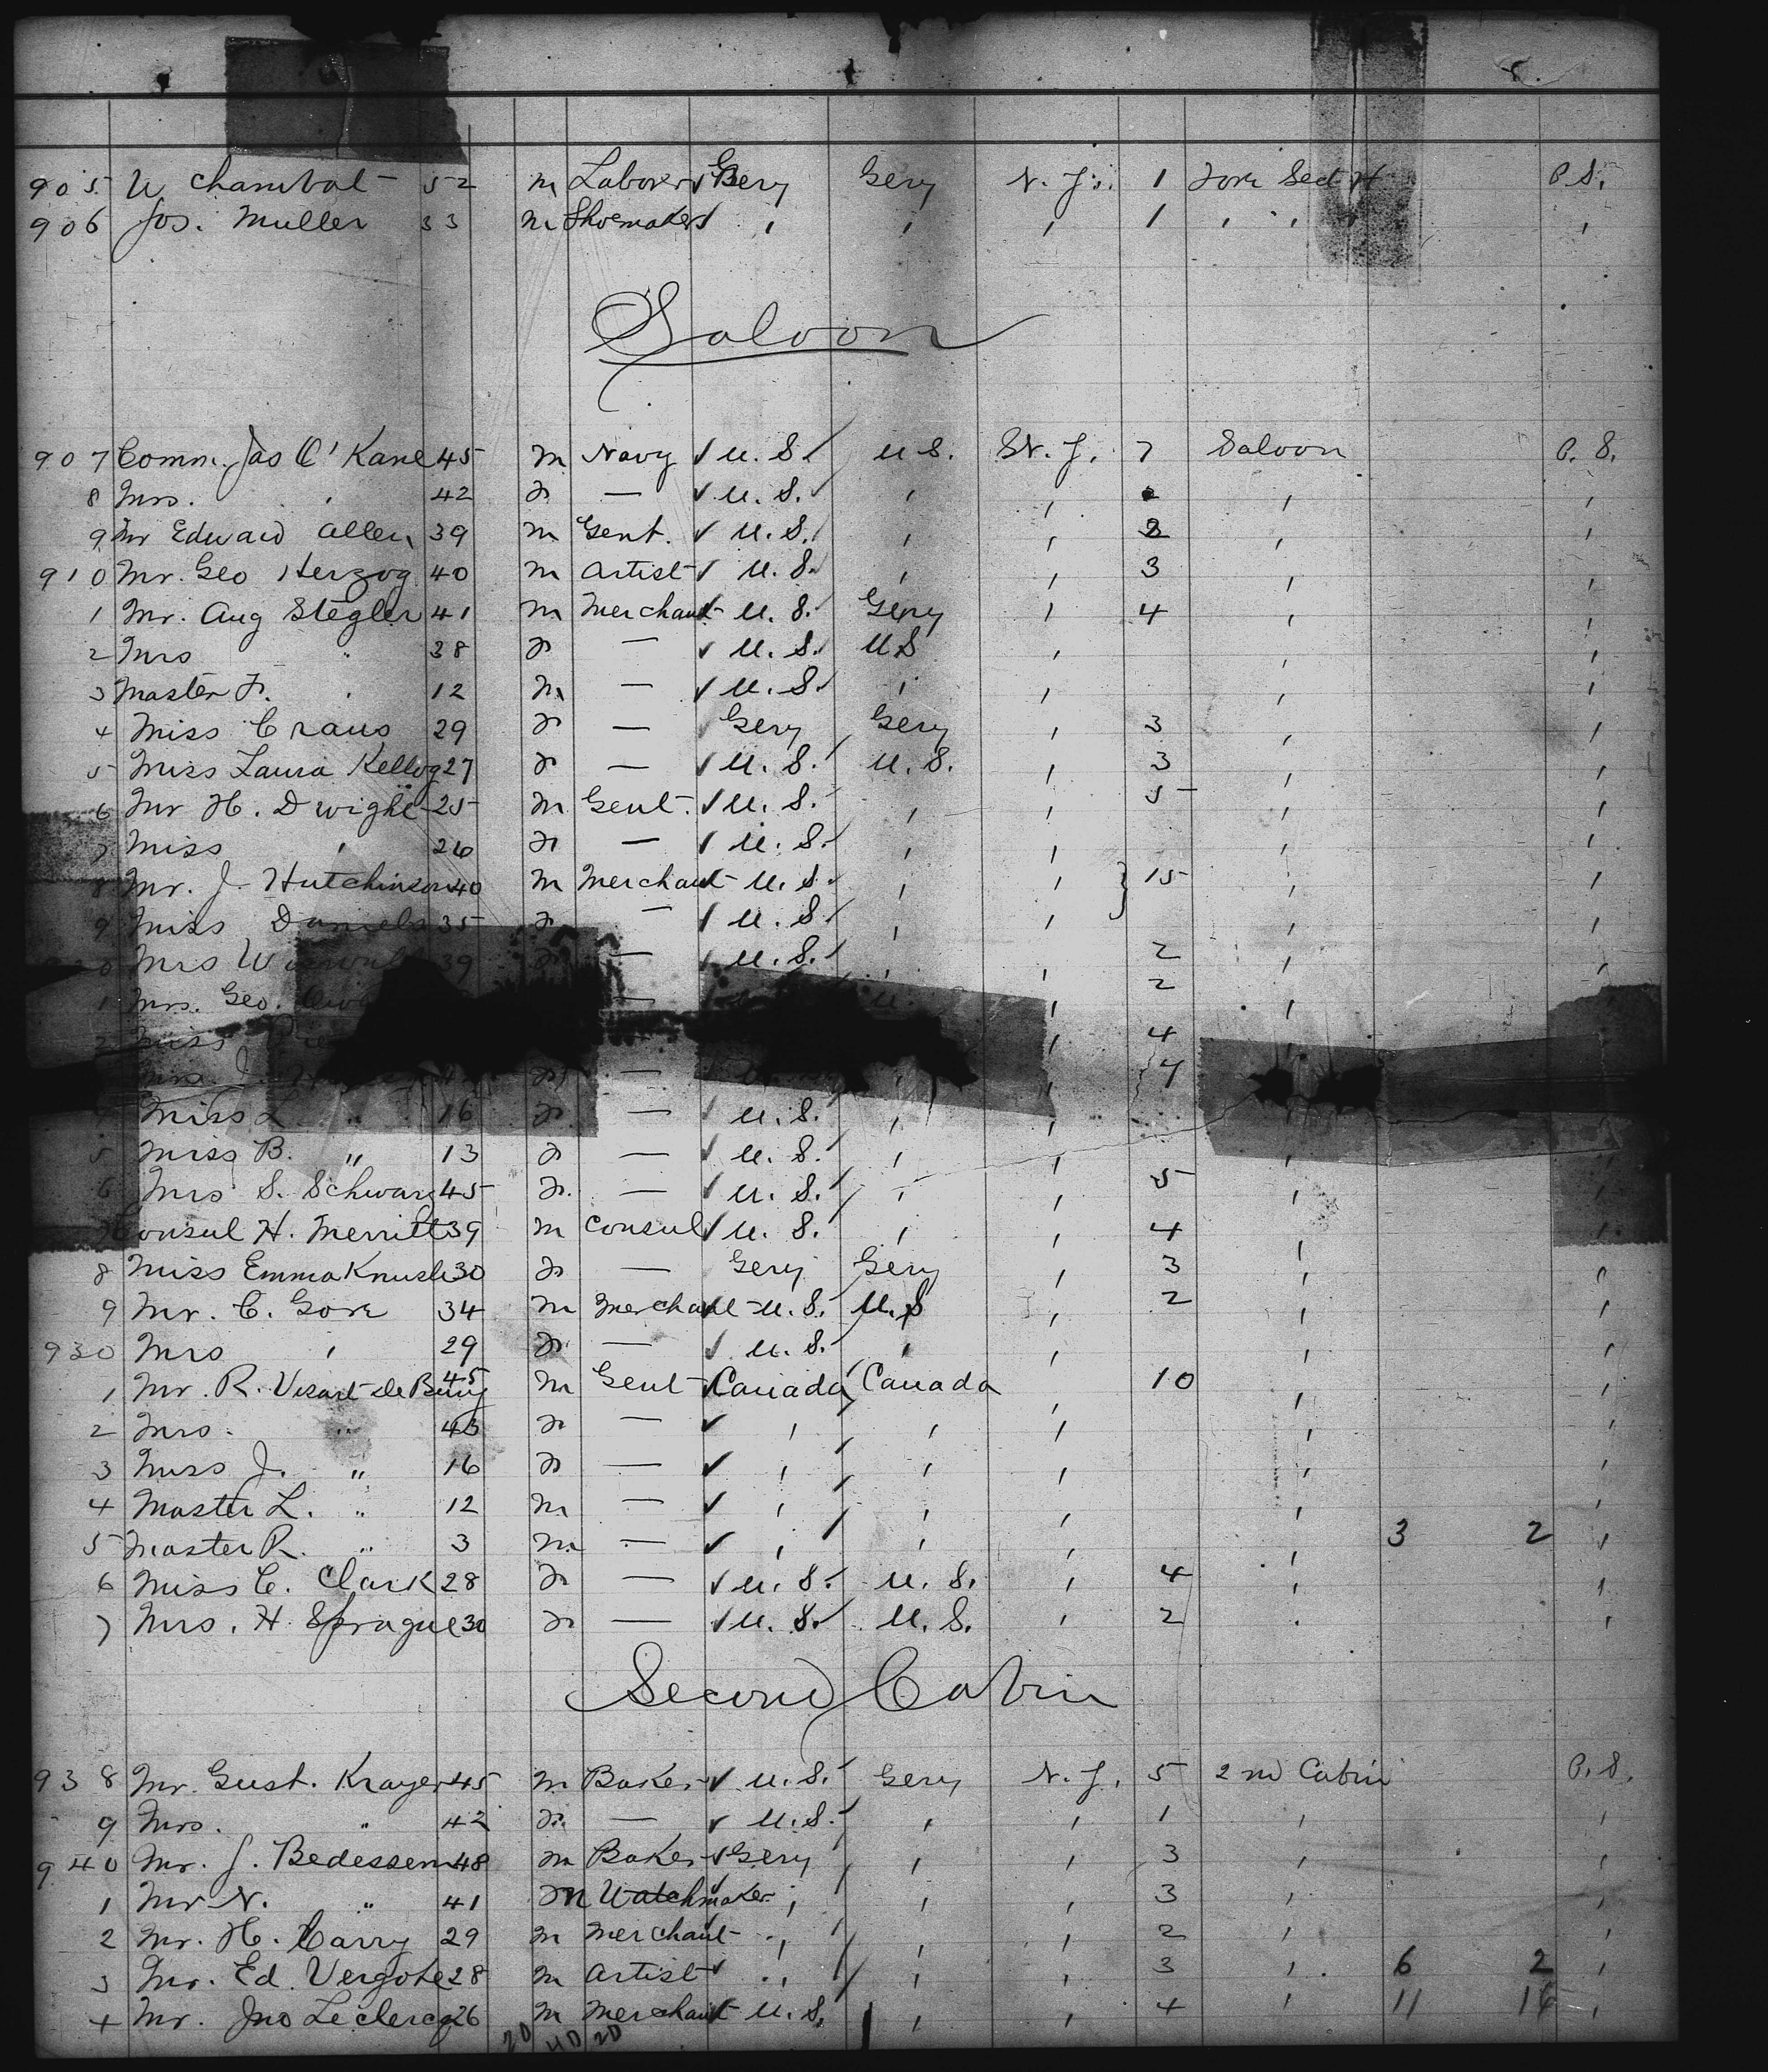 905 W Chambat 52 m Laborer ✓ Gery Gery N. J. 1 Fore Sect H P.S.
906 Jos. Muller 33 m Shoemaker ✓ , , , 1 , , , ,
Saloon
907 Comm. Jas O'Kane 45 m Navy ✓ U.S. U.S. N. J. 7 Saloon P.S.
8 Mrs. , 42 F — ✓ U.S. , , , ,
9 Mr Edward Allen 39 m Gent. ✓ U.S. , , 2 , ,
910 Mr. Geo Herzog 40 m Artist ✓ U.S. , , 3 , ,
1 Mr. Aug Stegler 41 m Merchant U.S. Gery , 4 , ,
2 Mrs " 38 F — ✓ U.S. U.S , , ,
3 Master F. , 12 m — ✓ U.S. , , , ,
4 Miss Craus 29 F — Gery Gery , 3 , ,
5 Miss Laura Kellog 27 F — ✓ U.S. U.S. , 3 , ,
6 Mr H. Dwight 25 m Gent. ✓ U.S. , , 5 , ,
7 Miss , 26 F — ✓ U.S. , , , ,
8 Mr. J. Hutchinson 40 m Merchant U.S. , , } 15 , ,
9 Miss Daniels 35 F — ✓ U.S. , , , ,
0 Mrs 39 F — ✓ U.S. , , 2 , ,
1 Mrs. Geo. — , 2 , ,
2 Miss , 4 ,
Mrs. J. F — , , 7
Miss L " 16 F — ✓ U.S. , ,
5 Miss B. " 13 F — ✓ U.S. , , ,
6 Mrs S. Schwarz 45 F. — ✓ U.S. , , 5 ,
7 Consul H. Merritt 39 m Consul ✓ U.S. , , 4 , ,
8 Miss Emma Knusli 30 F — Gery Gery , 3 , ,
9 Mr. C. Gore 34 m Merchant U.S. U.S , 2 , ,
930 Mrs , 29 F — ✓ U.S. , , , ,
1 Mr. R. Visart de Bury 45 m Gent ✓ Canada Canada , 10 , ,
2 Mrs. " 43 F — ✓ , , , , ,
3 Miss J. " 16 F — ✓ , , , , ,
4 Master L. " 12 m — ✓ , , , , ,
5 Master R. " 3 m — ✓ , , , , 3 2 ,
6 Miss C. Clark 28 F — ✓ U.S. U.S. , 4 , ,
7 Mrs. H. Sprague 30 F — ✓ U.S. U.S. , 2 . ,
Second Cabin
938 Mr. Gust. Krayer 45 m Baker ✓ U.S. Gery N. J. 5 2nd Cabin P.S.
9 Mrs. " 42 F. — ✓ U.S. , , 1 , ,
940 Mr. J. Bedessem 48 m Baker ✓ Gery , , 3 , ,
1 Mr N. " 41 m Watchmaker , , , 3 , ,
2 Mr. H. Carry 29 m Merchant , , , 2 , ,
3 Mr. Ed. Vergote 28 m Artist ✓ , , , 3 , 6 2 ,
4 Mr. Jno Leclercq 26 m Merchant U.S. , , 4 , 11 14 ,
20 40 20